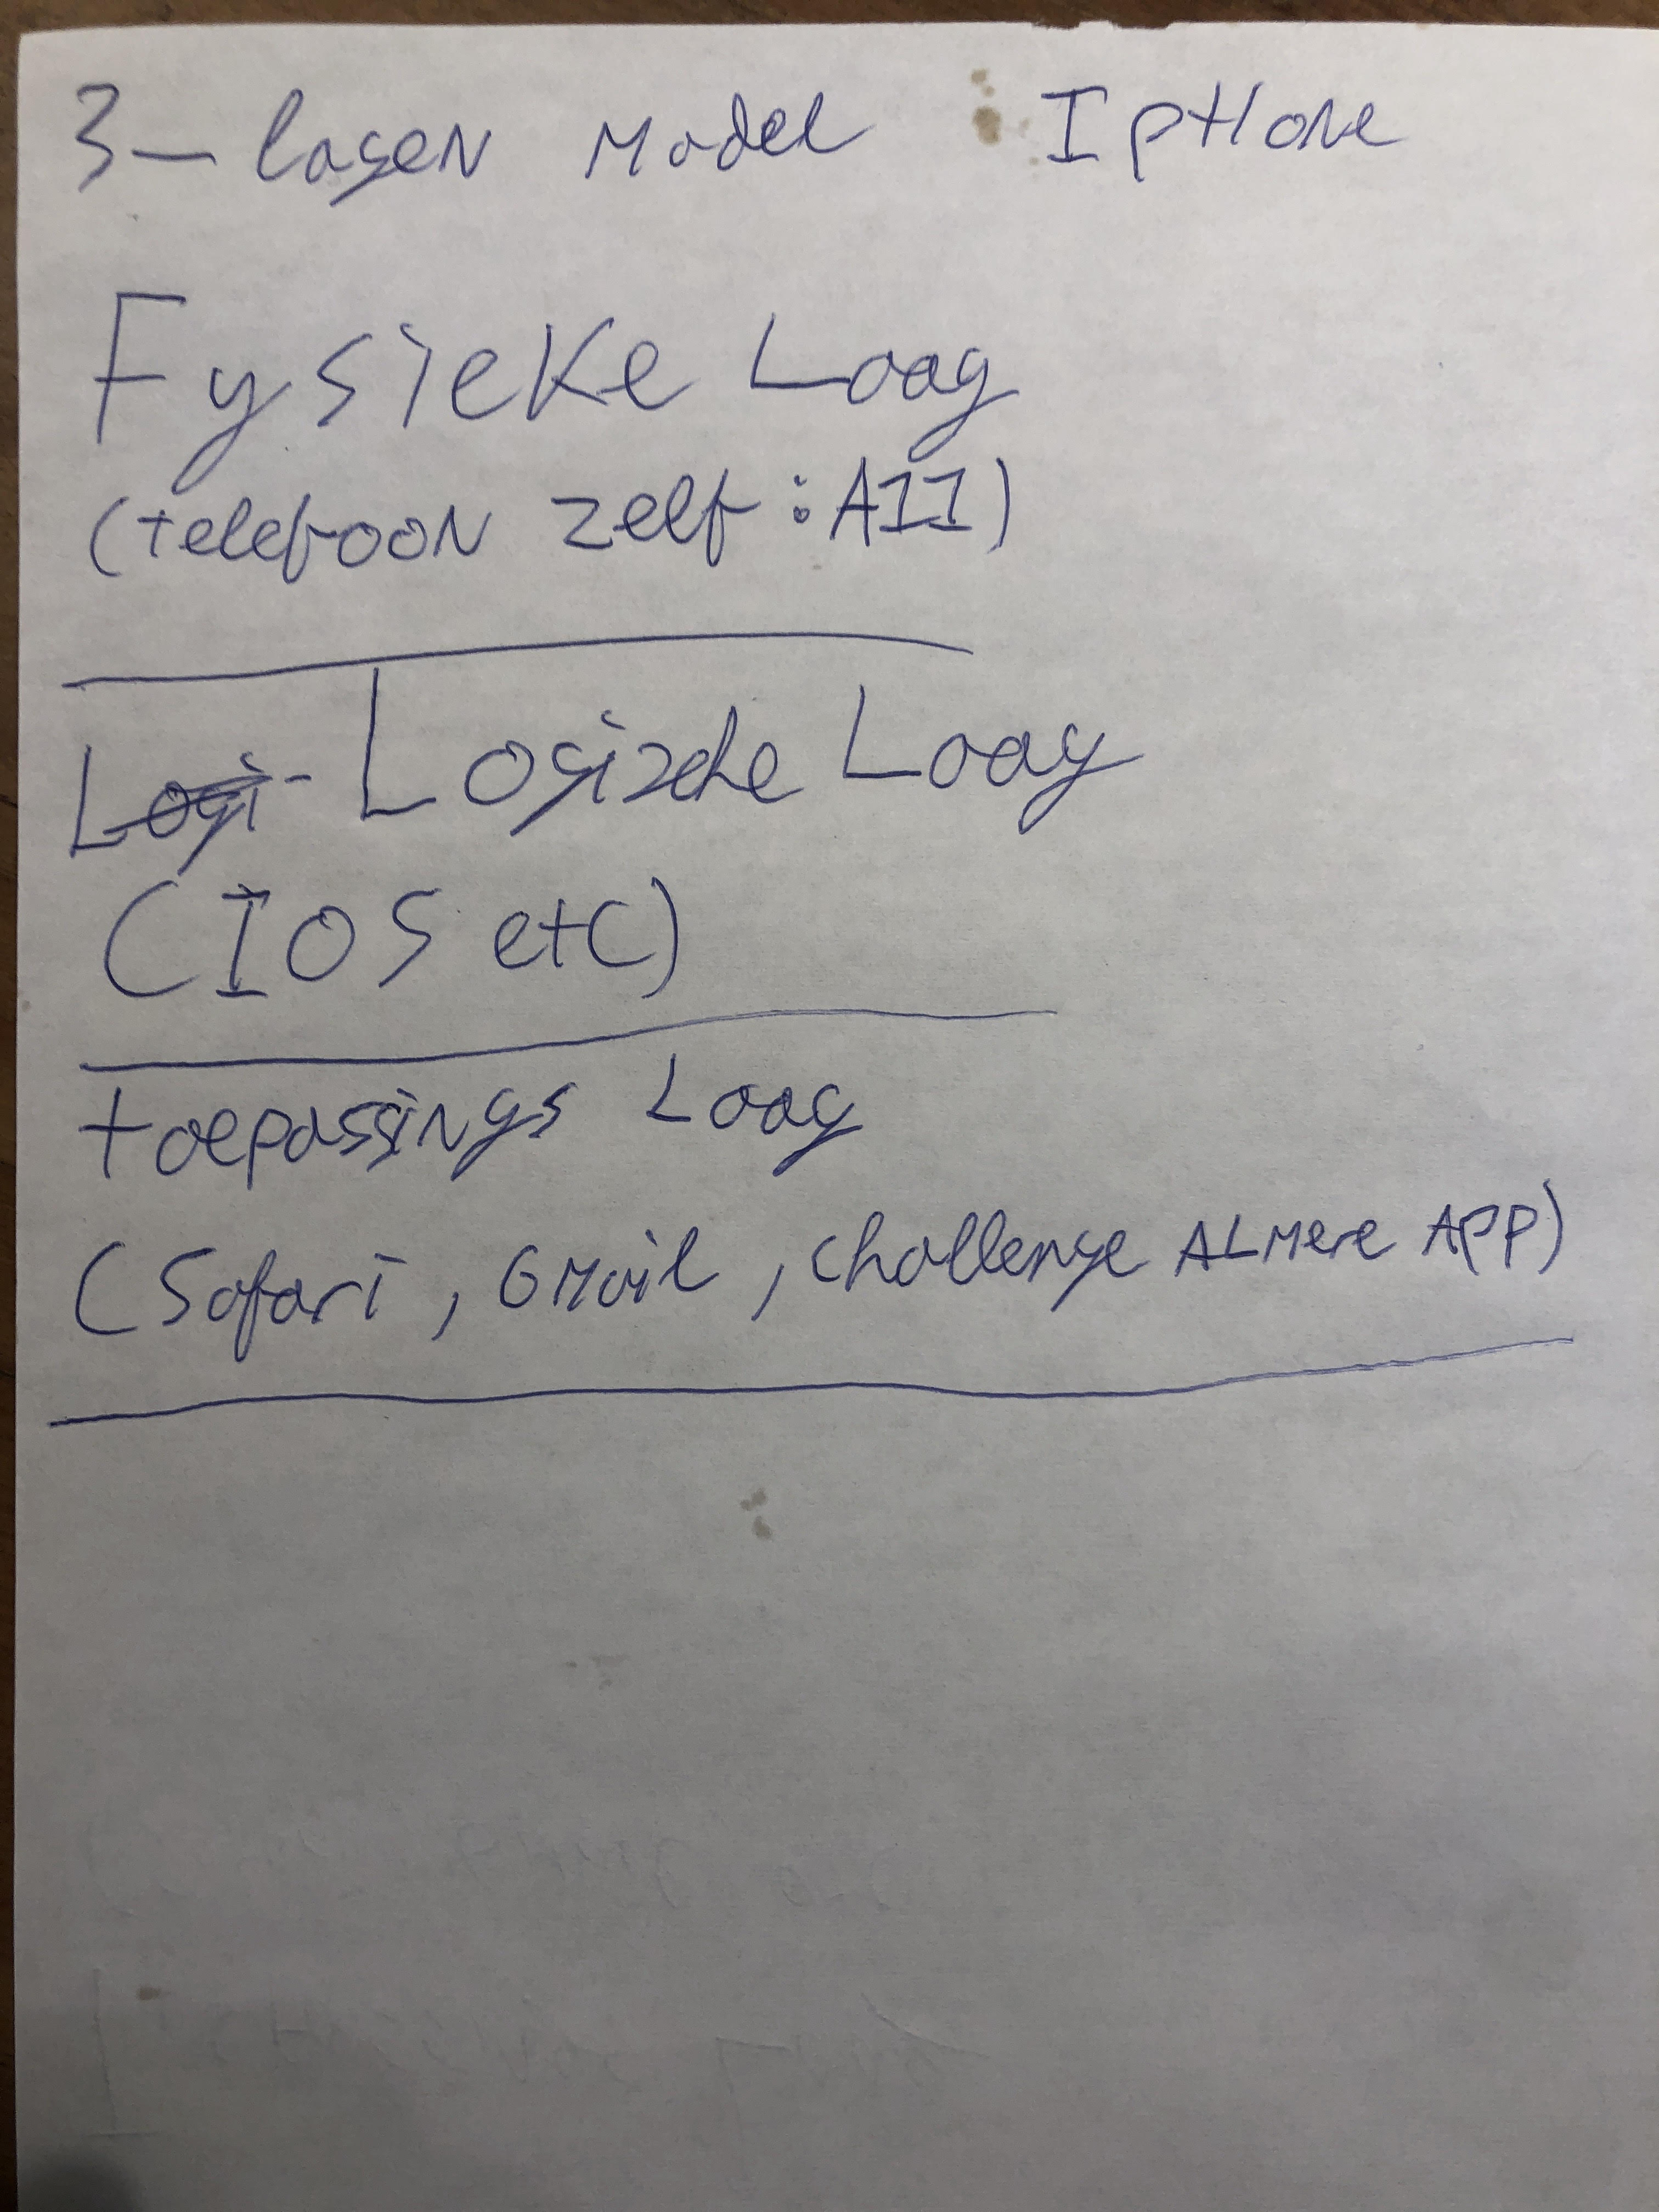 3-lagen Model IPHone
Fysieke Laag
(telefoon zelf: A11)
Logi- Logische Laag
(IOS etc)
toepassings Laag
(Safari, GMail, challenge ALMere APP)